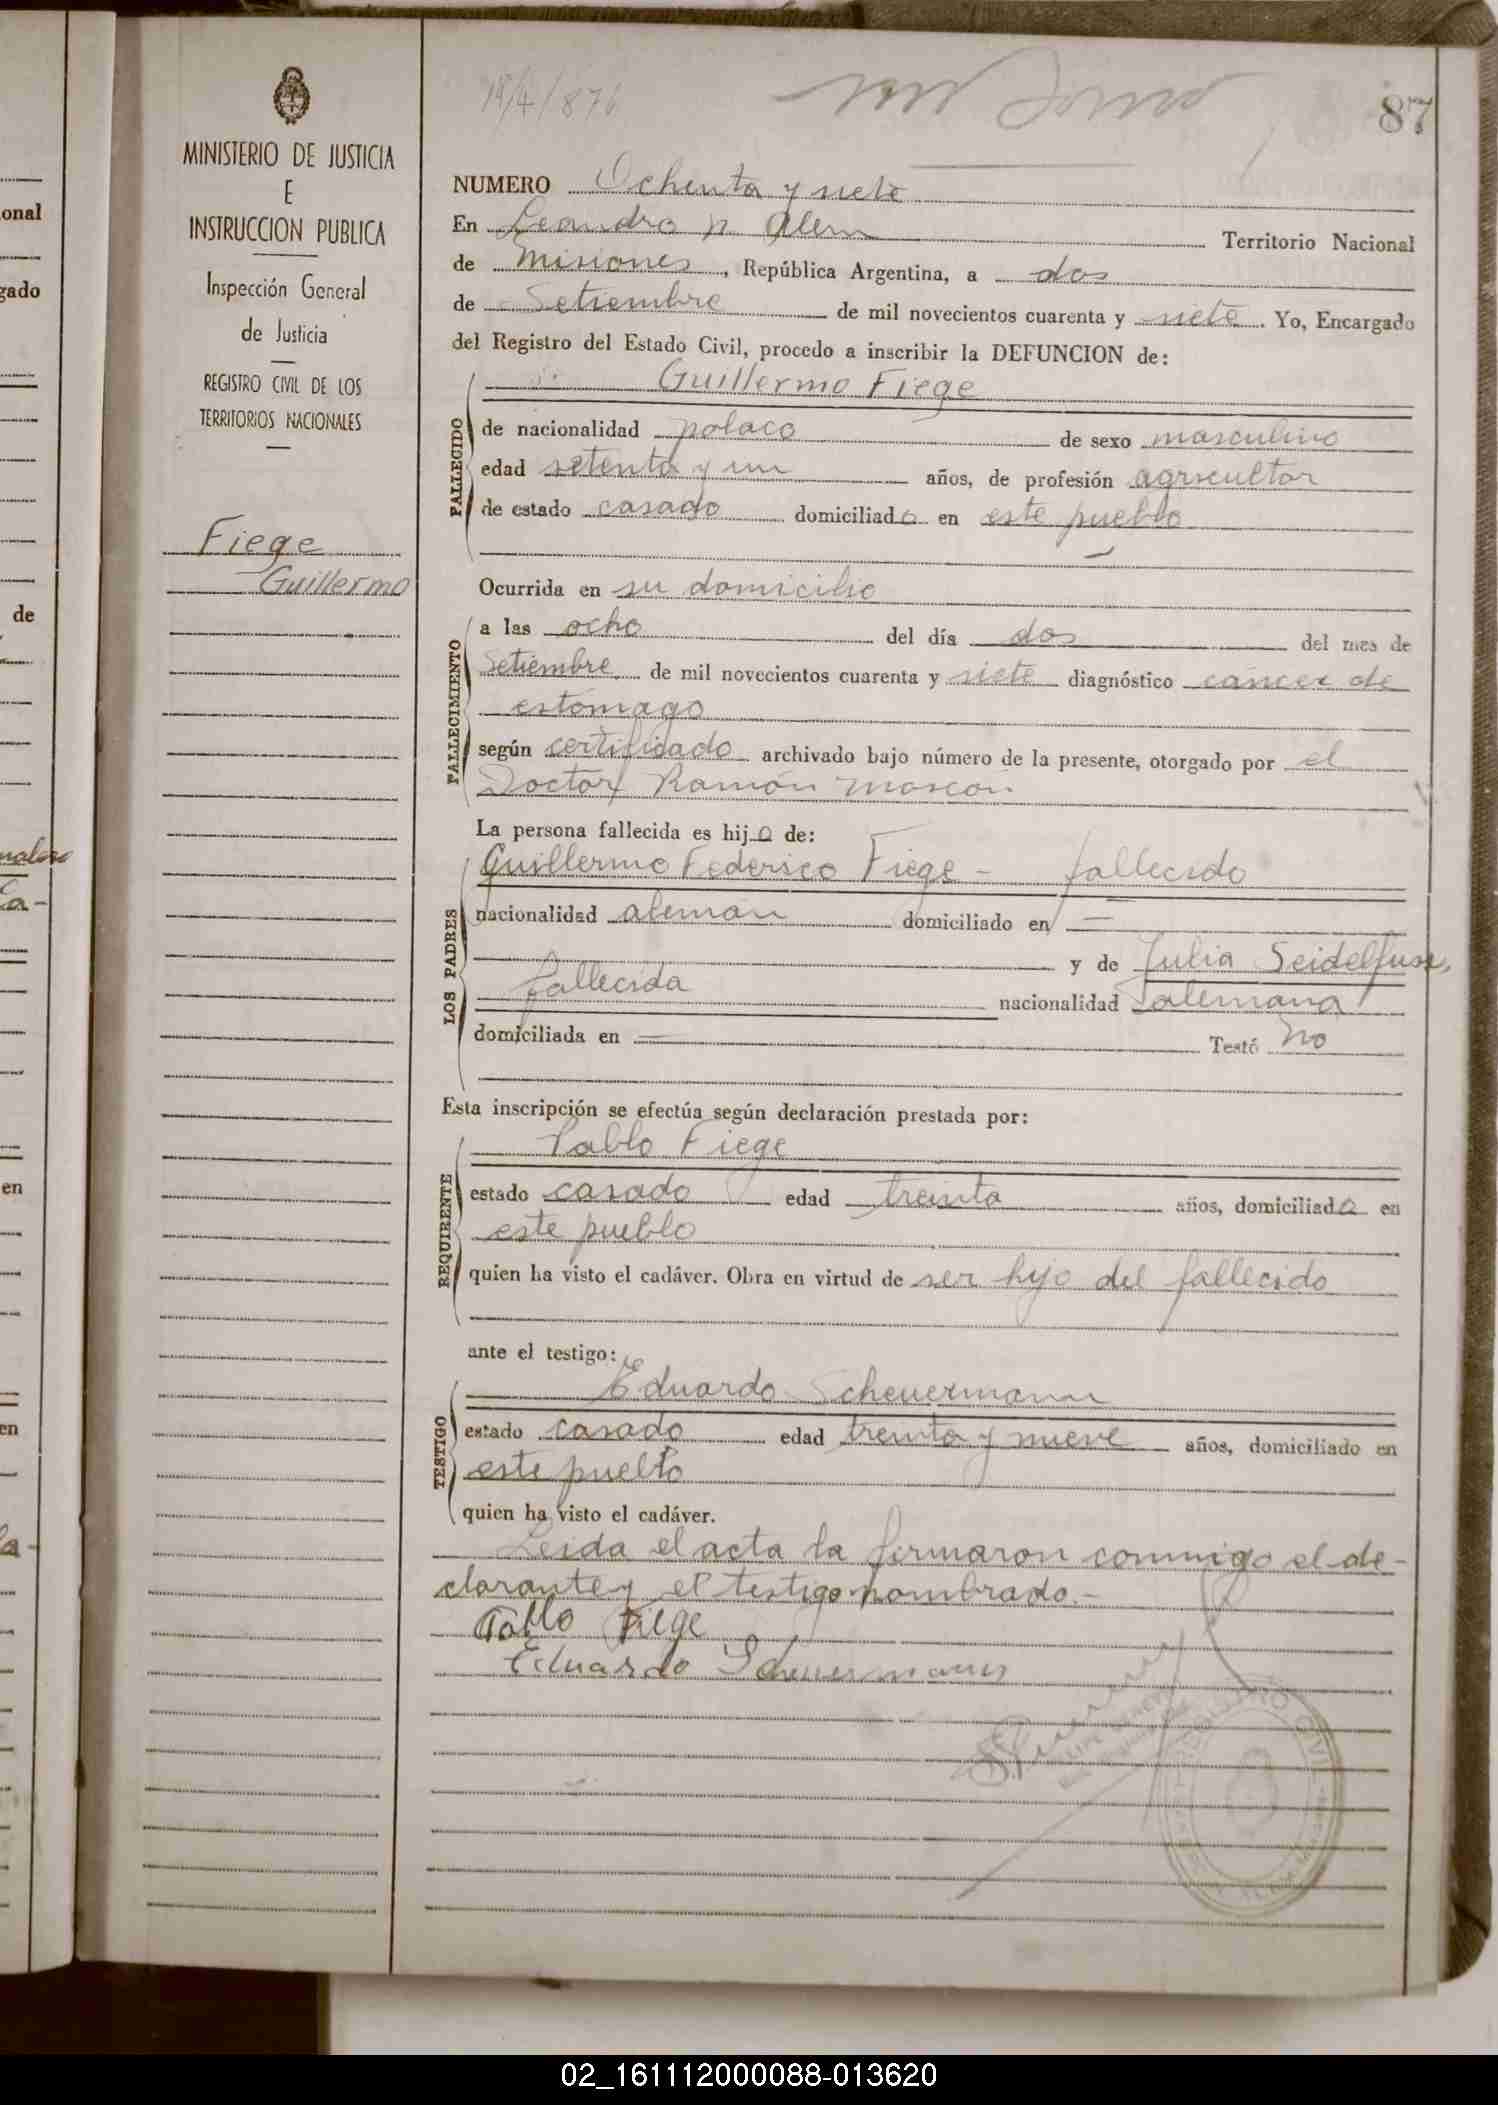 87
MINISTERIO DE JUSTICIA
E
INSTRUCCION PUBLICA
Inspección General
de Justicia
REGISTRO CIVIL DE LOS
TERRITORIOS NACIONALES
Fiege
Guillermo
NUMERO Ochenta y siete
En Leandro N. Alem Territorio Nacional
de Misiones, República Argentina, a dos
de Setiembre de mil novecientos cuarenta y siete. Yo, Encargado
del Registro del Estado Civil, procedo a inscribir la DEFUNCION de:
Guillermo Fiege
FALLECIDO
de nacionalidad polaco de sexo masculino
edad setenta y un años, de profesión agricultor
de estado casado domiciliado en este pueblo
Ocurrida en su domicilio
FALLECIMIENTO
a las ocho del día dos del mes de
Setiembre de mil novecientos cuarenta y siete diagnóstico cáncer de
estómago
según certificado archivado bajo número de la presente, otorgado por el
Doctor Ramón Moscon
La persona fallecida es hijo de:
LOS PADRES
Guillermo Federico Fiege - fallecido
nacionalidad alemán domiciliado en —
y de Julia Seidelfuss,
fallecida nacionalidad alemana
domiciliada en — Testó No
Esta inscripción se efectúa según declaración prestada por:
REQUIRENTE
Pablo Fiege
estado casado edad treinta años, domiciliado en
este pueblo
quien ha visto el cadáver. Obra en virtud de ser hijo del fallecido
ante el testigo:
TESTIGO
Eduardo Scheuermann
estado casado edad treinta y nueve años, domiciliado en
este pueblo
quien ha visto el cadáver.
Leida el acta la firmaron conmigo el de-
clarante y el testigo nombrado.-
Pablo Fiege
Eduardo Scheuermann
REGISTRO CIVIL
onal
gado
de
en
en
02_161112000088-013620